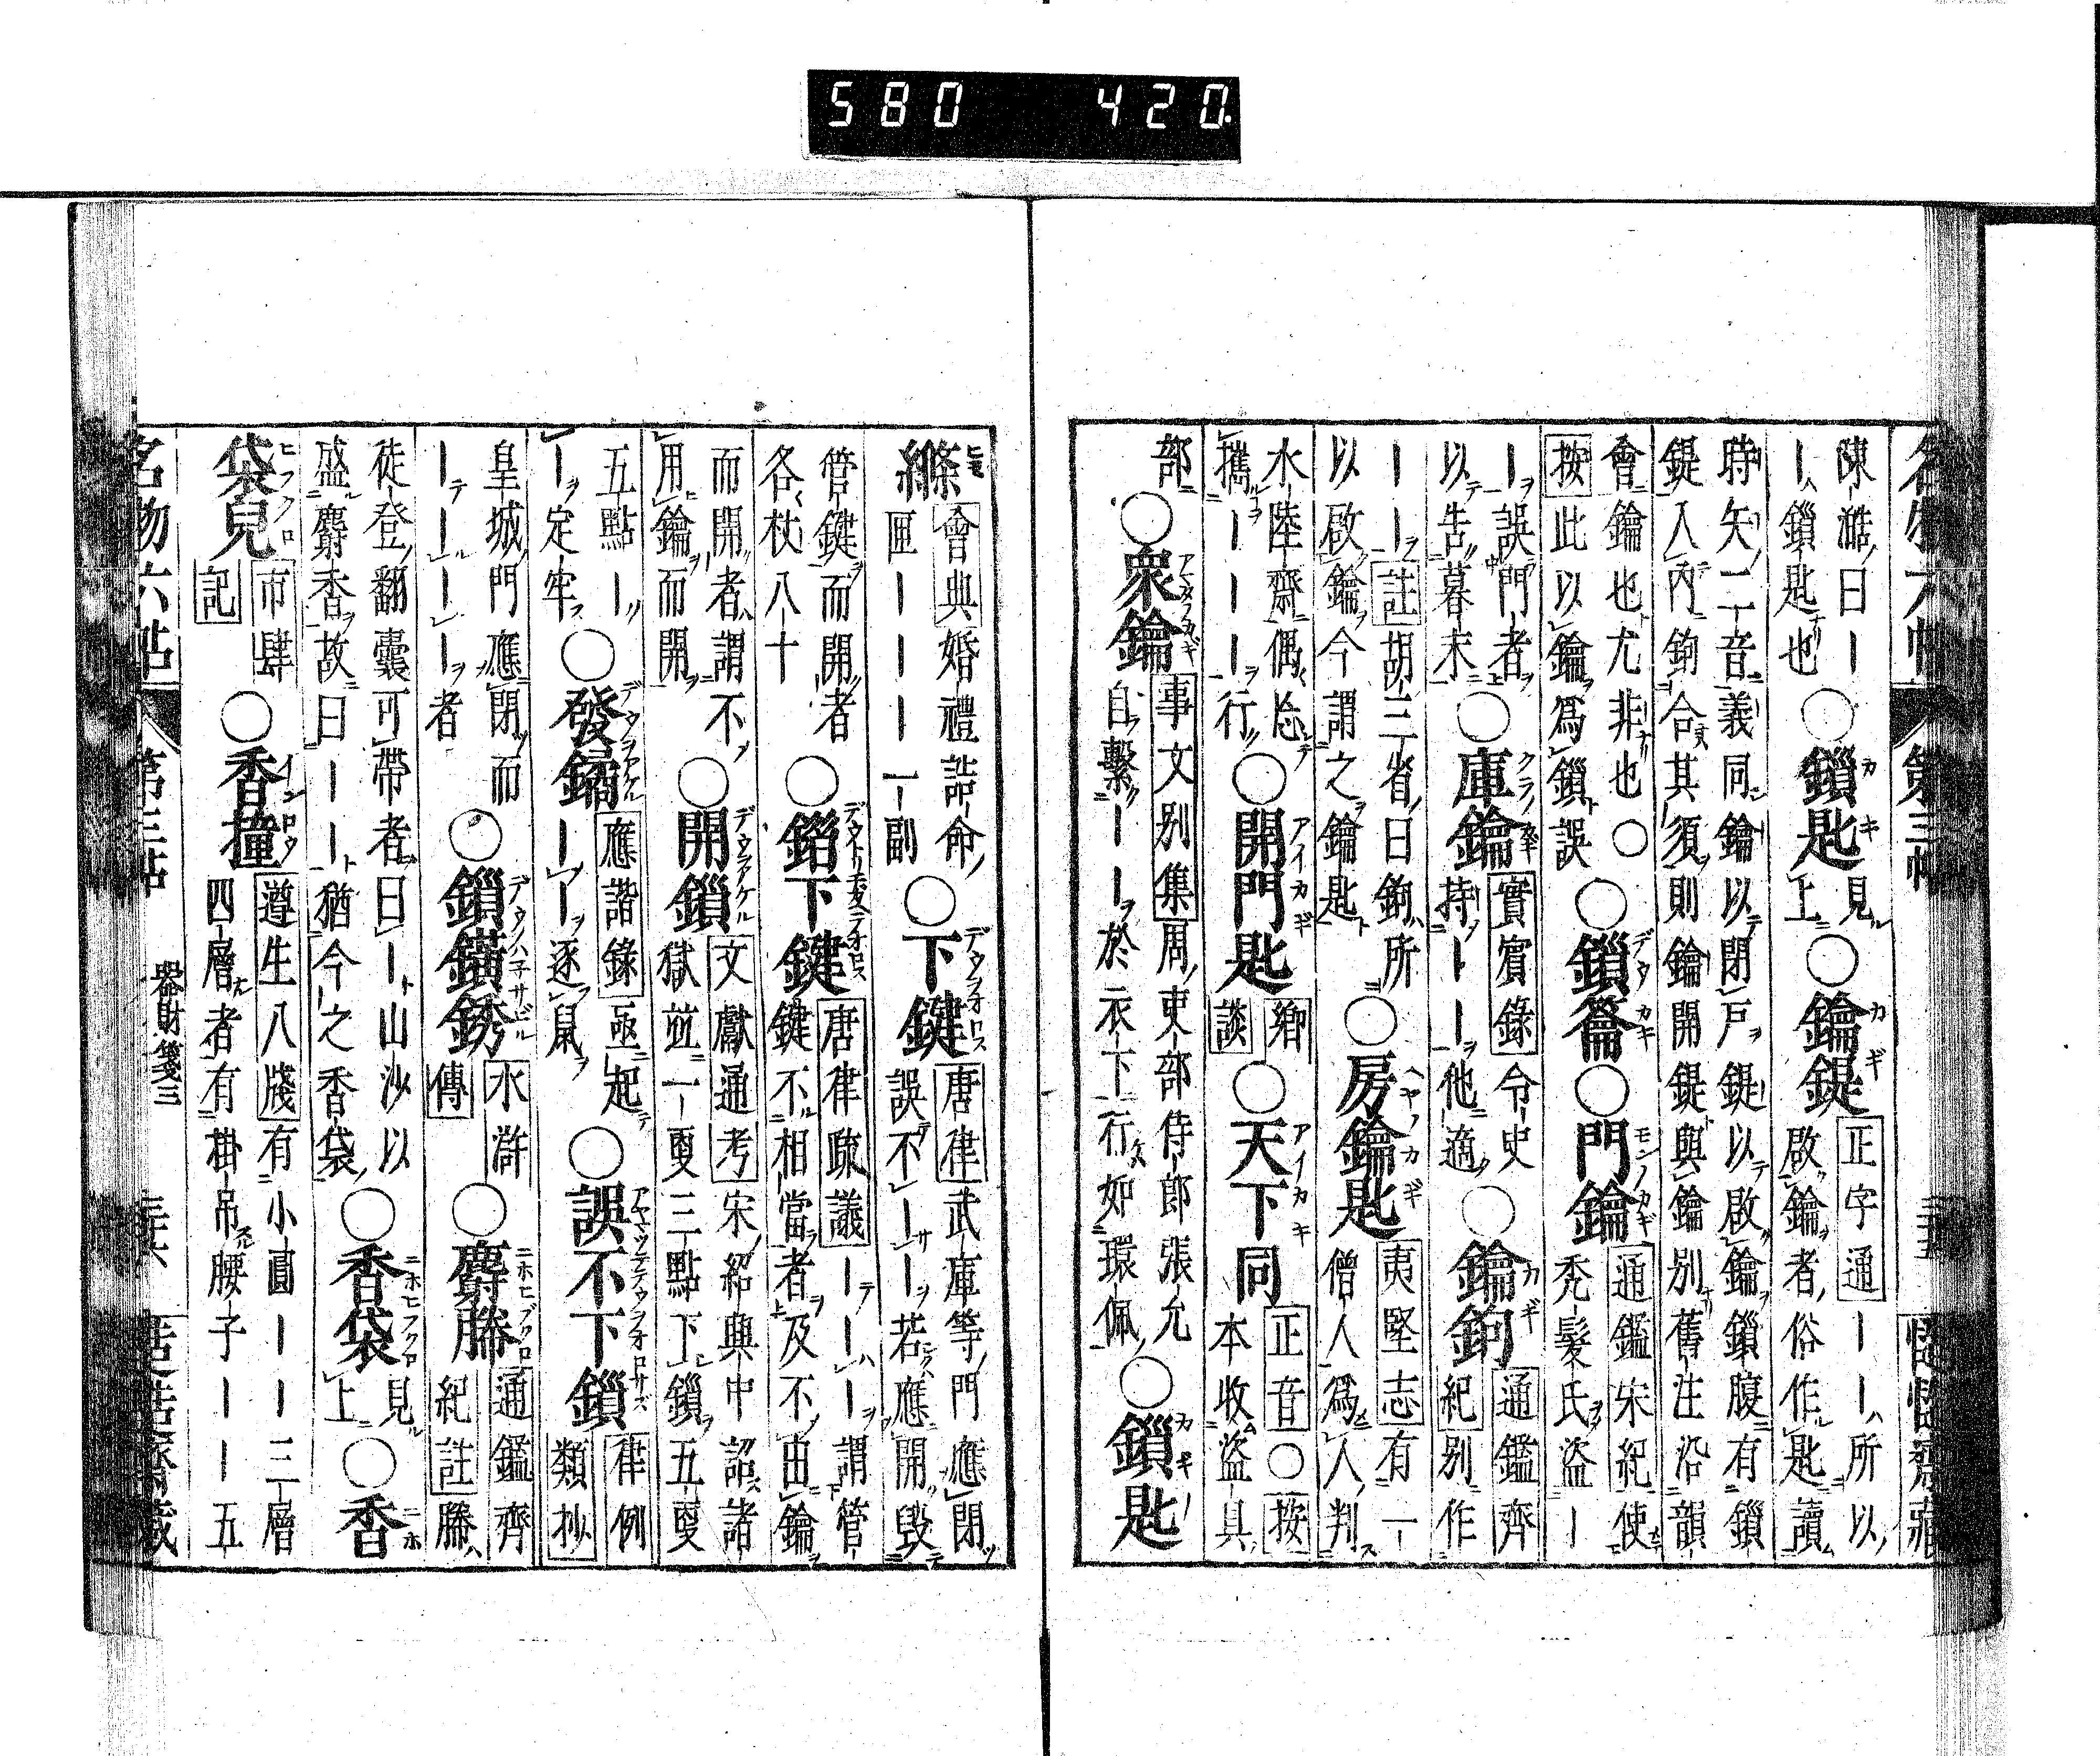 580 420.
名物六帖 第三帖 三十五 恬恬齋藏
陳澔曰｜
｜鎖匙也
○鎖匙 見上
○鑰鍉 正字通｜｜所以
啟鑰者俗作匙讀
時矢二音義同鑰以閉戶鍉以啟鑰鎖腹有鎖
鍉入內鉤合其須則鑰開鍉與鑰別舊註沿韻
會鑰也尤非也○
按此以鑰爲鎖誤
○鎖籥○門鑰 通鑑宋紀使
禿髮氏盜｜
｜誤門者
以告暮末
○庫鑰 實賓錄令史
持｜｜他適
○鑰鉤 通鑑齊
紀別作
｜｜註胡三省曰鉤所
以啟鑰今謂之鑰匙
○房鑰匙 夷堅志有一
僧人爲人判
水陸齋偶忘
攜｜｜｜行
○開門匙 鄉談
○天下同 正音○按
本收盜具
部
○衆鑰 事文別集周吏部侍郎張允
自繫｜｜於衣下行如環佩
○鎖匙
縧 會典婚禮誥命
匣｜｜｜一副
○下鍵 唐律武庫等門應閉
誤不｜｜若應開毀
管鍵而開者
各杖八十
○錯下鍵 唐律疏議｜｜｜謂管
鍵不相當者及不由鑰
而開者謂不
用鑰而開
○開鎖 文獻通考宋紹興中詔諸
獄並一更三點下鎖五更
五點｜
｜定牢
○發鐍 應諧錄亟起
｜｜逐鼠
○誤不下鎖 律例
類抄
皇城門應閉而
｜｜｜｜者
○鎖鐄銹 水滸
傳
○麝縢 通鑑齊
紀註縢
徒登翻囊可帶者曰｜山沙以
盛麝香故曰｜｜猶今之香袋
○香袋 見上
○香
袋兒 市肆
記
○香撞 遵生八牋有小圓｜｜三層
四層者有掛吊腰子｜｜五
名物六帖 第三帖 器財箋三 三十六